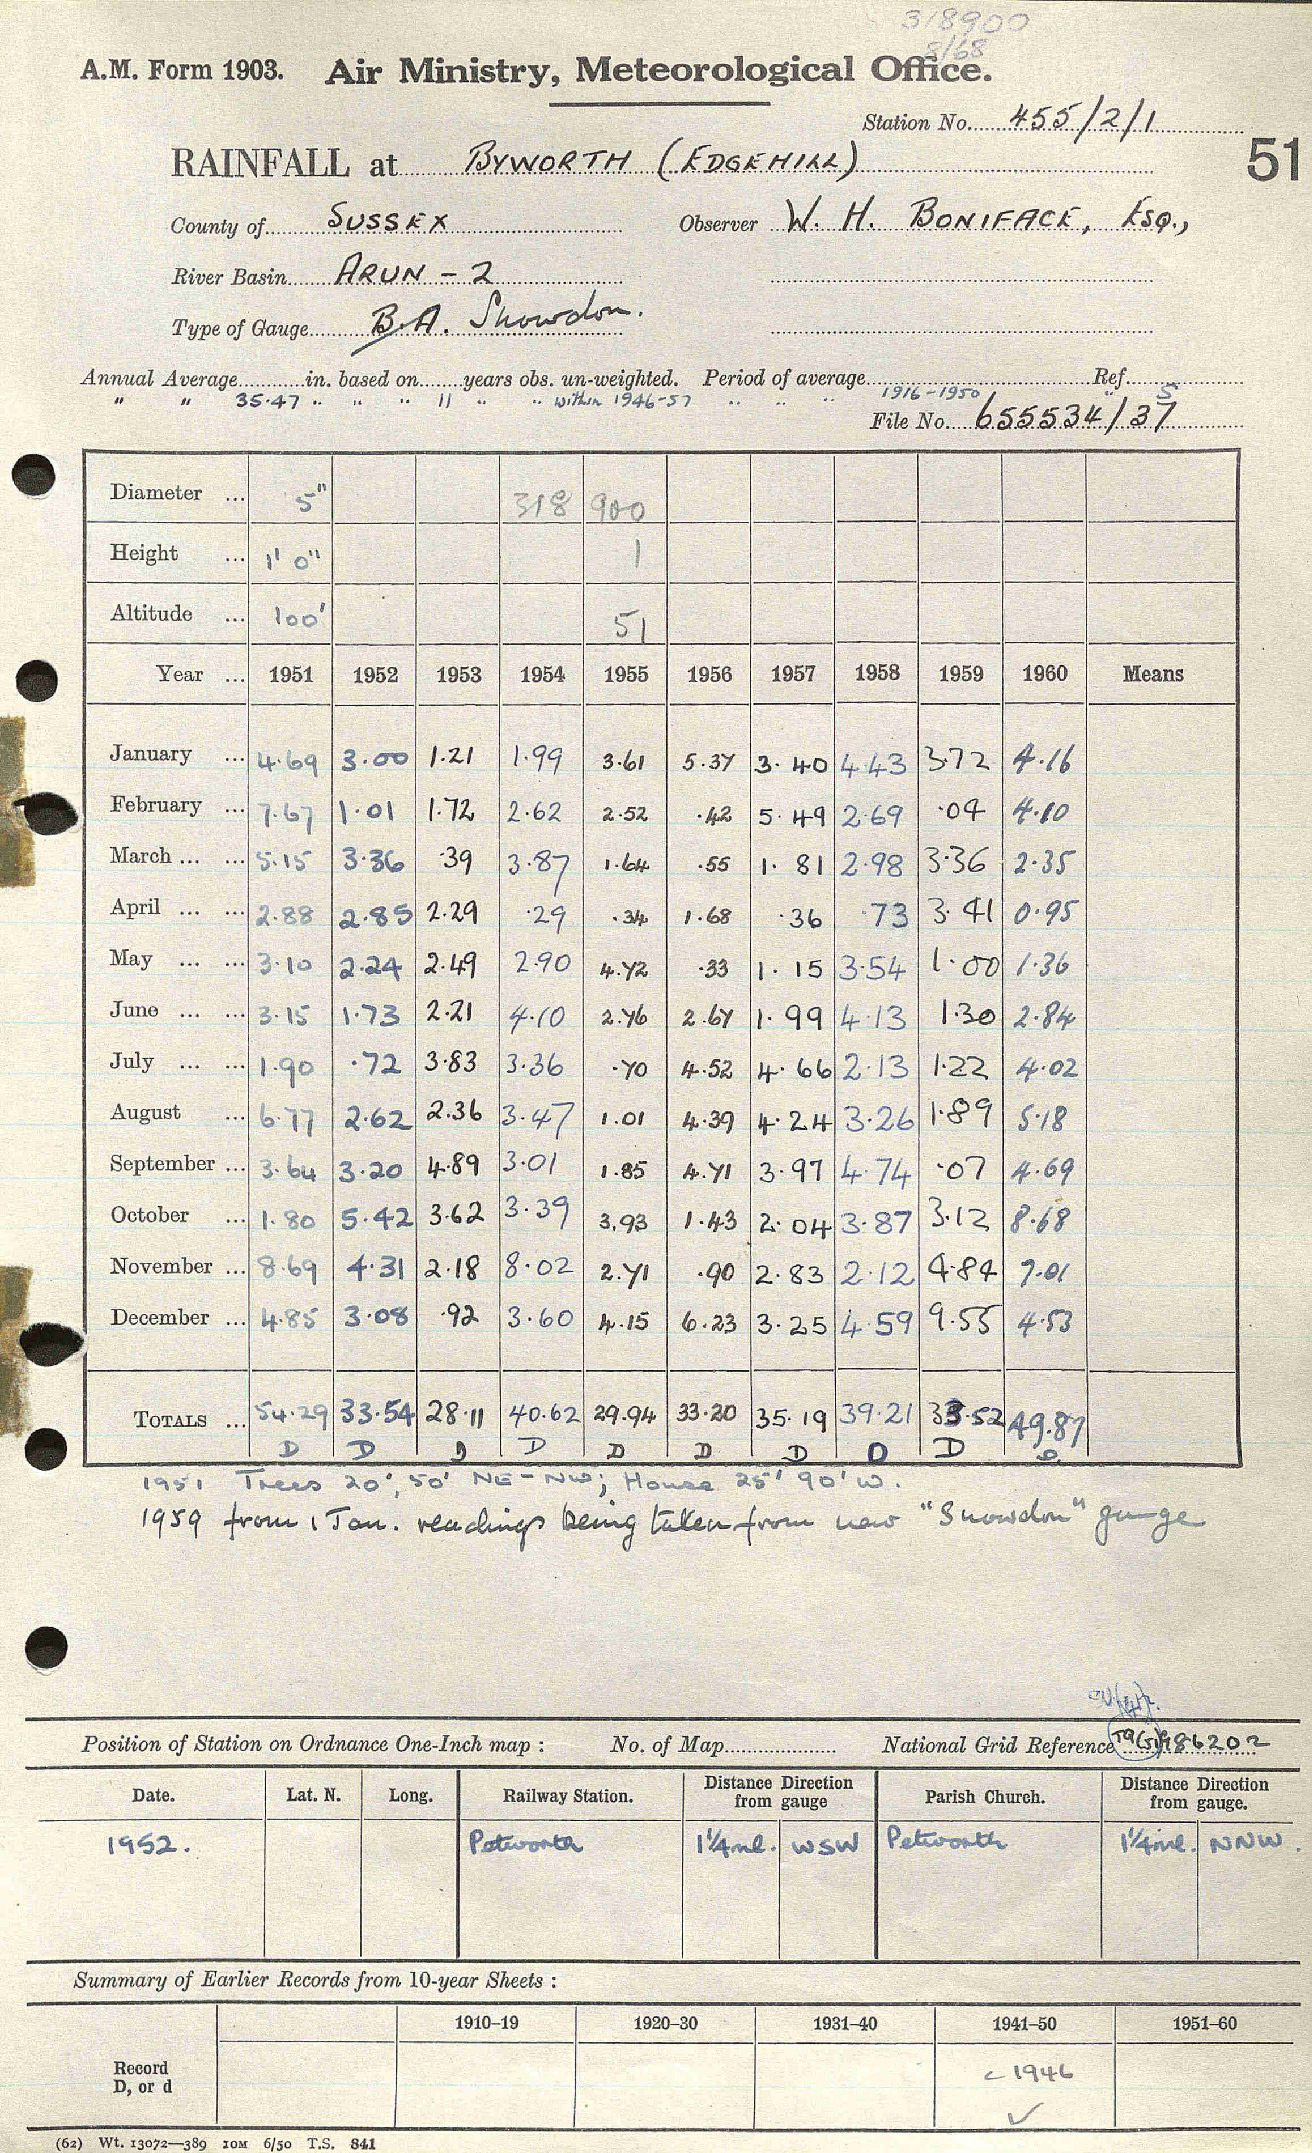 318900
8/68
A.M. Form 1903. Air Ministry, Meteorological Office.
Station No. 455/2/1
51
RAINFALL at BYWORTH (EDGEHILL)
County of SUSSEX Observer W. H. BONIFACE, ESQ.,
River Basin ARUN - 2
Type of Gauge B.A. Snowdon.
Annual Average in. based on years obs. un-weighted. Period of average Ref.
" " 35.47 " " " 11 " " within 1946-57 " " " 1916-1950 " 5
File No. 655534/37
Diameter ... 5" 318 900
Height ... 1' 0" 1
Altitude ... 100' 51
Year ... 1951 1952 1953 1954 1955 1956 1957 1958 1959 1960 Means
January ... 4.69 3.00 1.21 1.99 3.61 5.37 3.40 4.43 3.72 4.16
February ... 7.67 1.01 1.72 2.62 2.52 .42 5.49 2.69 .04 4.10
March ... ... 5.15 3.36 .39 3.87 1.64 .55 1.81 2.98 3.36 2.35
April ... ... 2.88 2.85 2.29 .29 .34 1.68 .36 .73 3.41 0.95
May ... ... 3.10 2.24 2.49 2.90 4.72 .33 1.15 3.54 1.00 1.36
June ... ... 3.15 1.73 2.21 4.10 2.76 2.67 1.99 4.13 1.30 2.84
July ... ... 1.90 .72 3.83 3.36 .70 4.52 4.66 2.13 1.22 4.02
August ... 6.77 2.62 2.36 3.47 1.01 4.39 4.24 3.26 1.89 5.18
September ... 3.64 3.20 4.89 3.01 1.85 4.71 3.97 4.74 .07 4.69
October ... 1.80 5.42 3.62 3.39 3.93 1.43 2.04 3.87 3.12 8.68
November ... 8.69 4.31 2.18 8.02 2.71 .90 2.83 2.12 4.84 7.01
December ... 4.85 3.08 .92 3.60 4.15 6.23 3.25 4.59 9.55 4.53
TOTALS ... 54.29 33.54 28.11 40.62 29.94 33.20 35.19 39.21 33.52 49.87
D D D D D D D D D
1951 Trees 20', 50' NE-NW; House 25' 90' W.
1959 from 1 Jan. readings being taken from new "Snowdon" gauge
Position of Station on Ordnance One-Inch map : No. of Map National Grid Reference 986202
Date. Lat. N. Long. Railway Station. Distance Direction from gauge Parish Church. Distance Direction from gauge.
1952. Petworth 1¼ml. WSW Petworth 1¼ml. NNW.
Summary of Earlier Records from 10-year Sheets :
1910–19 1920–30 1931–40 1941–50 1951–60
Record
D, or d
1946
(62) Wt. 13072—389 10M 6/50 T.S. 841